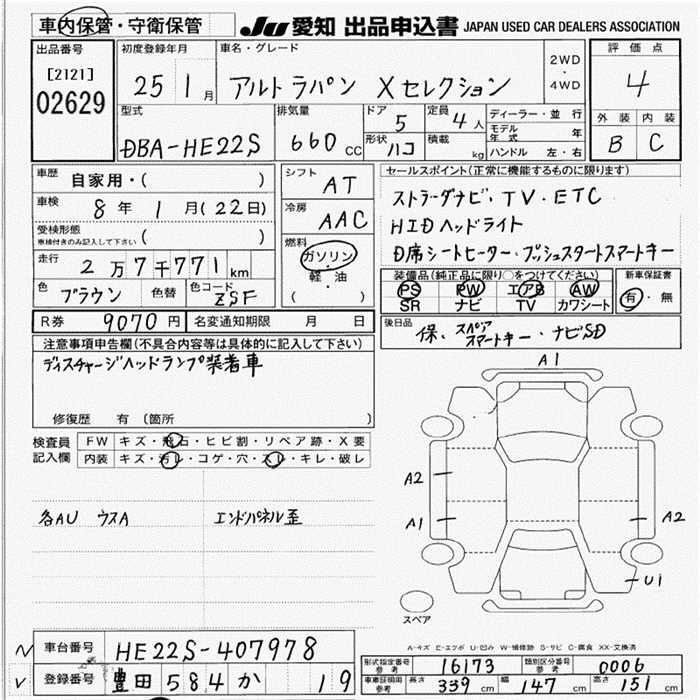 車内保管・守衛保管
JU 愛知 出品申込書 JAPAN USED CAR DEALERS ASSOCIATION
出品番号
[2121]
02629
初度登録年月
25 1月
車名・グレード
アルトラパン Xセレクション
2WD
・
4WD
評価点
4
外装 内装
B C
型式
DBA-HE22S
排気量
660 CC
ドア
5
定員
4人
形状
ハコ
積載
kg
ディーラー・並行
モデル年式 年
ハンドル 左・右
車歴
自家用・( )
車検
8年 1月(22日)
受検形態
車検付きのみ記入して下さい ( )
走行
2万7千771km
色
ブラウン
色替
色コード
ZSF
シフト
AT
冷房
AAC
燃料
ガソリン・
軽・油
( )
セールスポイント(正常に機能するものに限ります)
ストラーダナビ・TV・ETC
HIDヘッドライト
D席シートヒーター・プッシュスタートスマートキー
装備品(純正品に限り○をつけてください)
PS PW エアB AW
SR ナビ TV カワシート
新車保証書
有・無
R券 9070円
名変通知期限 月 日
後日品
保、スペアスマートキー・ナビSD
注意事項申告欄(不具合内容等は具体的に記入して下さい)
ディスチャージヘッドランプ装着車
修復歴 有(箇所 )
検査員
記入欄
FW キズ・飛石・ヒビ割・リペア跡・X要
内装 キズ・汚レ・コゲ・穴・スレ・キレ・破レ
各AU ウスA
エンドパネル歪
A1
A2
A1
A2
U1
スペア
A-キズ E-エクボ U-凹み W-補修跡 S-サビ C-腐食 XX-交換済
車台番号 HE22S-407978
登録番号 豊田 584 か 19
形式指定番号
参考
16173
類別区分番号
参考
0006
車車証明用
参考
長さ 339cm 幅 147cm 高さ 151cm